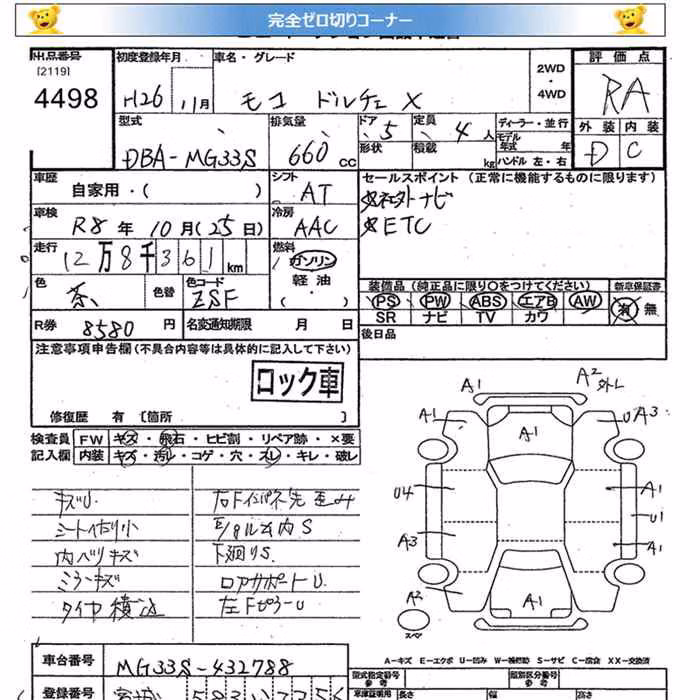 完全ゼロ切りコーナー
出品番号 初度登録年月 車名・グレード 2WD ・ 4WD 評価点
[2119]
4498 H26 11月 モコ ドルチェ X RA
型式 排気量 ドア 5 定員 4人 ディーラー・並行 外装 内装
DBA-MG33S 660cc 形状 積載 kg モデル年式 年式 ハンドル 左・右 D C
車歴 自家用・( ) シフト AT セールスポイント (正常に機能するものに限ります)
車検 R8年10月(25日) 冷房 AAC 社外ナビ
ETC
走行 12万8千361km 燃料 ガソリン 軽油・( )
色 茶 色替 色コード ZSF 装備品(純正品に限り○をつけてください) 新車保証書
PS PW ABS エアB AW 有 無
SR ナビ TV カワ
R券 8580円 名変通知期限 月 日 後日品
注意事項申告欄(不具合内容等は具体的に記入して下さい)
ロック車
修復歴 有 〔箇所 〕
検査員 FW キズ・飛石・ヒビ割・リペア跡・×要
記入欄 内装 キズ・汚レ・コゲ・穴・スレ・キレ・破レ
キズU
シート作り小
内ベリキズ
ミラーキズ
タイヤ積込
右Fインパネ先歪み
下廻りS
ロアサポートU
左FピラーU
A1 A2 外し
A1 A1 UA3
U4 A1
U1
A3 A1
A2 A1
スペア
A-キズ E-エクボ U-凹み W-補修跡 S-サビ C-腐食 XX-交換済
車台番号 MG33S-432788
型式指定番号 参考 類別区分番号 参考
登録番号 宮城 583 車庫証明用 参考 長さ 幅 高さ